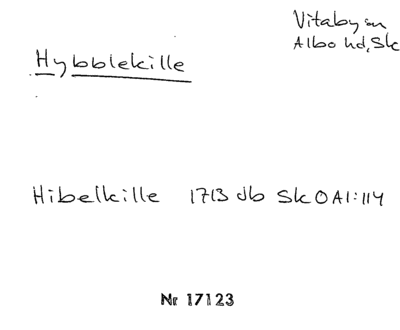 Vitaby sn
Albo hd, Sk
Hybblekille
Hibelkille 1713 db Sk O AI:114
Nr 17123